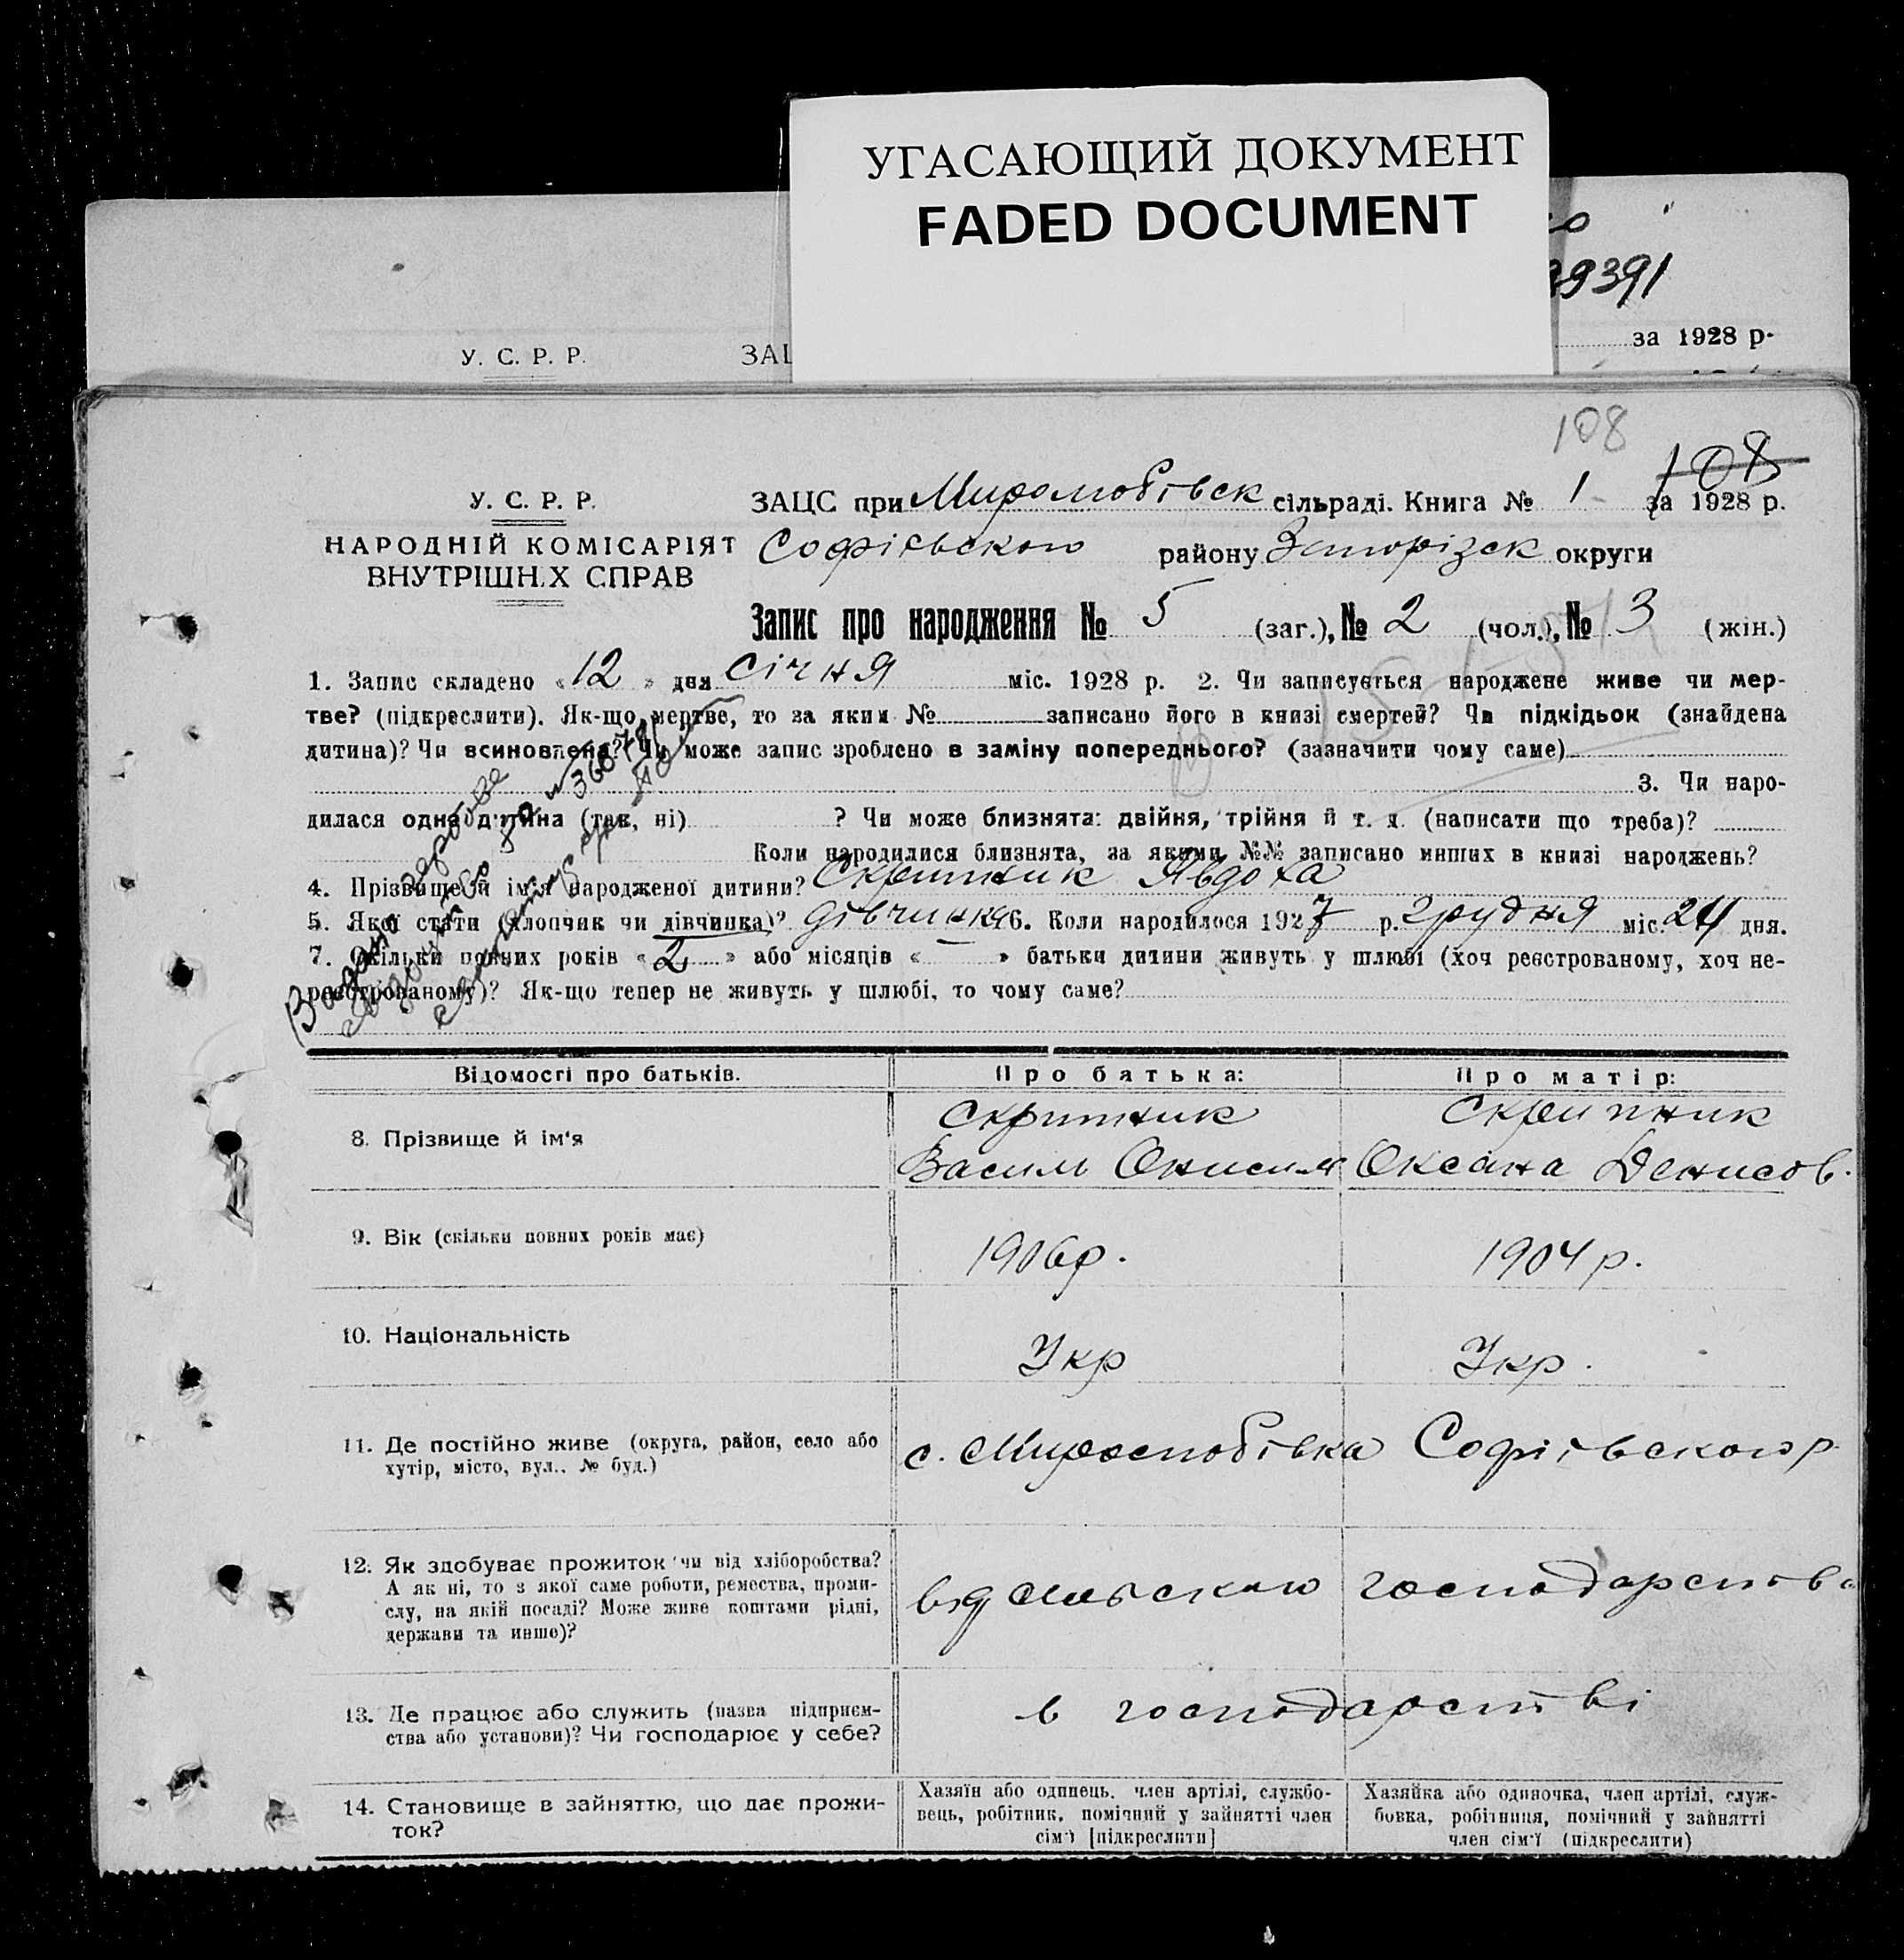 УГАСАЮЩИЙ ДОКУМЕНТ
FADED DOCUMENT
39391
У. С. Р. Р. ЗАЦ за 1928 р.
108
108
У. С. Р. Р.
НАРОДНІЙ КОМІСАРІЯТ
ВНУТРІШНІХ СПРАВ
ЗАЦС при Миролюбівск сільраді. Книга № 1 за 1928 р.
Софіївського району Запорізск округи
Запис про народження № 5 (заг.), № 2 (чол.), № 3 (жін.)
1. Запис складено «12» дня січня міс. 1928 р. 2. Чи записується народжене живе чи мер-
тве? (підкреслити). Як-що мертве, то за яким № записано його в книзі смертей? Чи підкідьок (знайдена
дитина)? Чи всиновлена? Чи може запис зроблено в заміну попереднього? (зазначити чому саме)
3. Чи наро-
дилася одна дитина (так, ні) ? Чи може близнята: двійня, трійня й т. д. (написати що треба)?
Коли народилися близнята, за якими №№ записано инших в книзі народжень?
4. Прізвище й ім'я народженої дитини? Скрипник Явдоха
5. Якої стати (хлопчик чи дівчинка)? дівчинка 6. Коли народилося 1927 р. Грудня міс. 24 дня.
7. Скільки повних років «2» або місяців «–» батьки дитини живуть у шлюбі (хоч реєстрованому, хоч не-
реєстрованому)? Як-що тепер не живуть у шлюбі, то чому саме?
Відомості про батьків. Про батька: Про матір:
8. Прізвище й ім'я
Скрипник
Василь Онисим
Скрипник
Оксана Денисов.
9. Вік (скільки повних років має) 1906р. 1904 р.
10. Національність Укр Укр.
11. Де постійно живе (округа, район, село або
хутір, місто, вул., № буд.)
с. Миролюбівка Софіївського р.
12. Як здобуває прожиток чи від хліборобства?
А як ні, то з якої саме роботи, ремества, проми-
слу, на якій посаді? Може живе коштами рідні,
держави та инше)?
від сільского господарства
13. Де працює або служить (назва підприєм-
ства або установи)? Чи господарює у себе?
в господарстві
14. Становище в зайняттю, що дає прожи-
ток?
Хазяїн або одинець, член артілі, службо-
вець, робітник, помічний у зайнятті член
сім'ї [підкреслити]
Хазяйка або одиночка, член артілі, служ-
бовка, робітниця, помічний у зайнятті
член сім'ї (підкреслити)